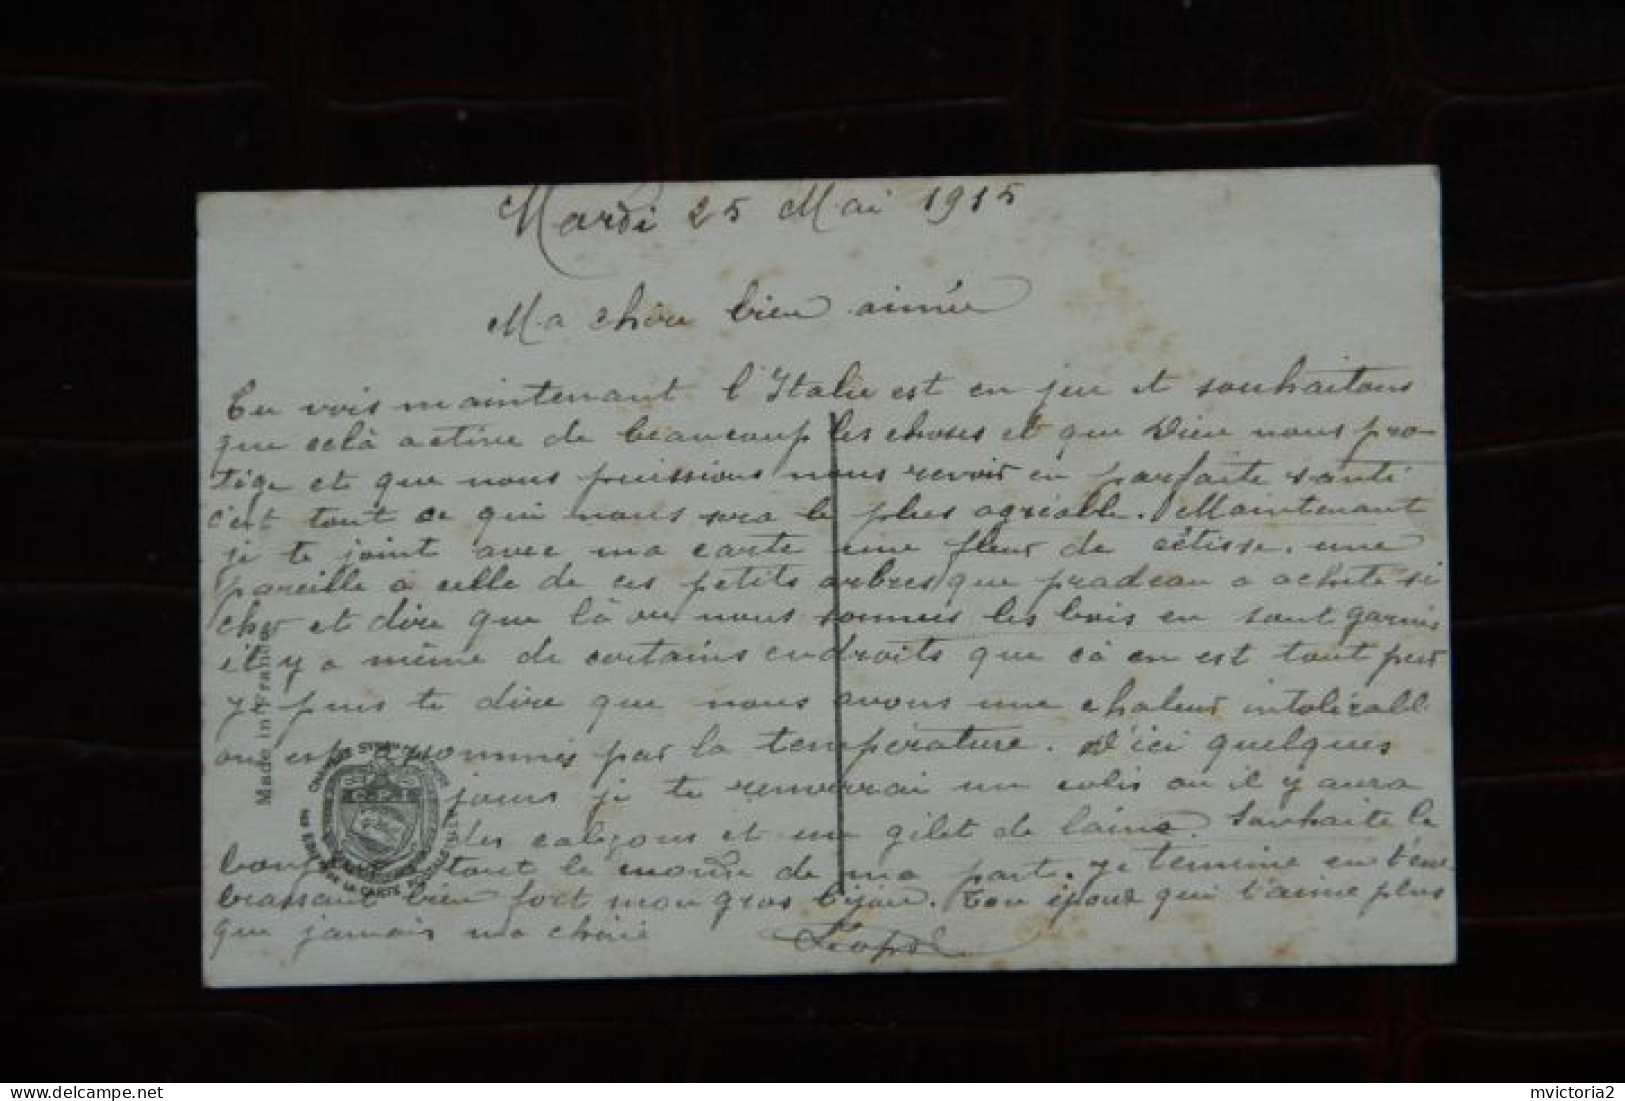 Mardi 25 Mai 1915
Ma chère bien aimée
Tu vois maintenant l'Italie est en jeu et souhaitons
que celà active de beaucoup les choses et que Dieu nous pro-
tège et que nous puissions nous revoir en parfaite santé
c'est tout ce qui nous sera le plus agréable. Maintenant
je te joint avec ma carte une fleur de cétisse. une
pareille a celle de ces petits arbres que pradeau a acheté si
cher et dire que là ou nous sommes les bois en sont garnis
il y a même de certains endroits que cà en est tout
Je puis te dire que nous avons une chaleur intolérable
on est par la température. D'ici quelques
jours je te renverrai un colis ou il y aura
des caleçons et un gilet de laine. Souhaite le
bonjour tout le monde de ma part. Je termine en t'em
brassant bien fort mon gros bijou. Ton époux qui t'aime plus
que jamais ma chérie Léopold
Made in France
LA CARTE
mvictoria2